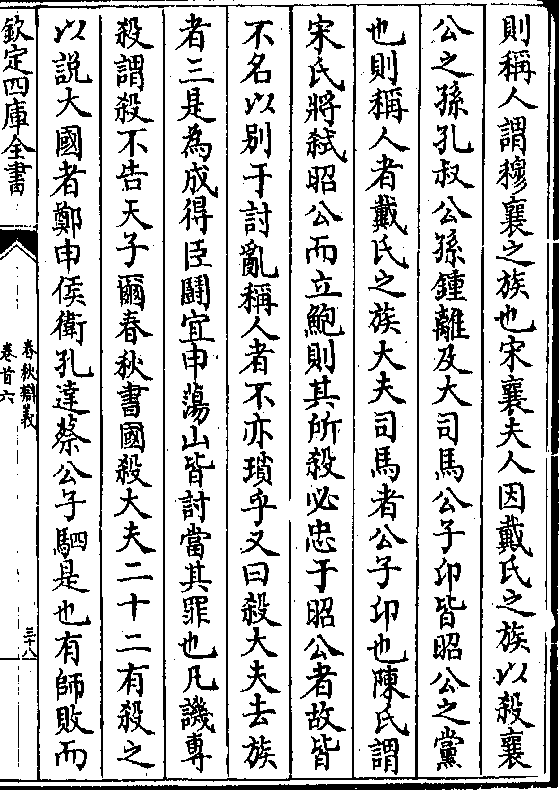 則稱人謂穆襄之族也宋襄夫人因戴氏之族以殺襄
公之孫孔叔公孫鍾離及大司馬公子卬皆昭公之黨
也則稱人者戴氏之族大夫司馬者公子卬也陳氏謂
宋氏將弑昭公而立鮑則其所殺必忠于昭公者故皆
不名以别于討亂稱人者不亦瑣乎又曰殺大夫去族
者三是為成得臣鬭宜申蕩山皆討當其罪也凡譏專
殺謂殺不告天子爾春秋書國殺大夫二十二有殺之
以説大國者鄭申侯衛孔達蔡公子駟是也有師敗而
欽定四庫全書
春秋辯義
卷首六
三十八